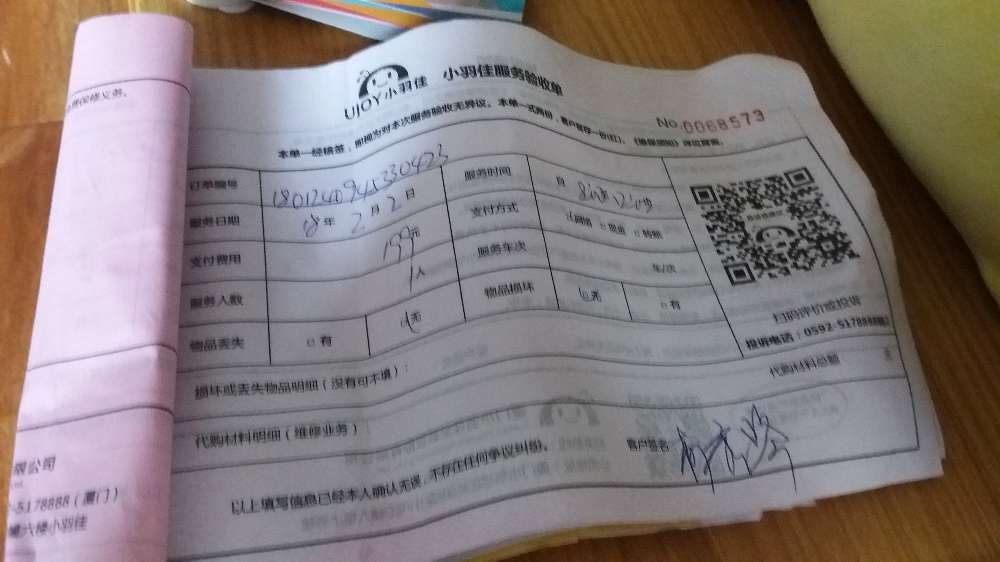 保修义务。
UJOY小羽佳 小羽佳服务验收单
No.0068573
本单一经核签，即视为对本次服务验收无异议。本单一式两份，客户留存一份(红)。
订单编号 180124094533042323
服务时间
服务日期 18年2月2日
支付方式 网络 现金 转账
支付费用 199元
服务车次 车/次
服务人数 1人
物品损坏 无 有
物品丢失 有 无
扫码评价或投诉
投诉电话：0592-5178888
损坏或丢失物品明细（没有可不填）：
代购材料总额
代购材料明细（维修业务）
客户签名：
以上填写信息已经本人确认无误，不存在任何争议纠纷。
限公司
-5178888（厦门）
六楼小羽佳